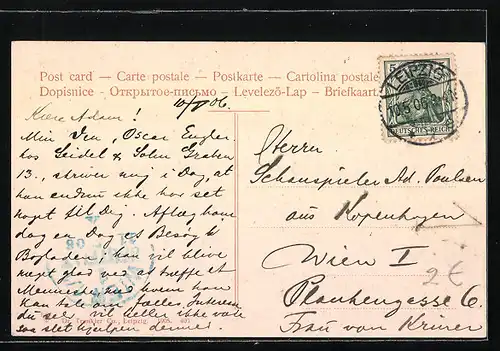 Post card — Carte postale — Postkarte — Cartolina postale
Dopisnice — Открытое-письмо — Levelező-Lap — Briefkaart
LEIPZIG
DEUTSCHES REICH
10/5 06.
Kære Adam!
Min Ven, Oscar Engler
hos Seidel & Sohn Graben
13., skriver mig i Dag, at
han endnu ikke har set
noget til Dig. Aflæg ham
dog en Dag et Besøg i
Bogladen, han vil blive
meget glad ved at træffe et
Menneske, med hvem han
kan tale om fælles
du ser, vil heller ikke
Herrn
Schauspieler Ad. Poulsen
aus Kopenhagen
Wien I
Plankengasse 6
Frau von
2€
Dr. Trenkler Co., Leipzig. 1905.